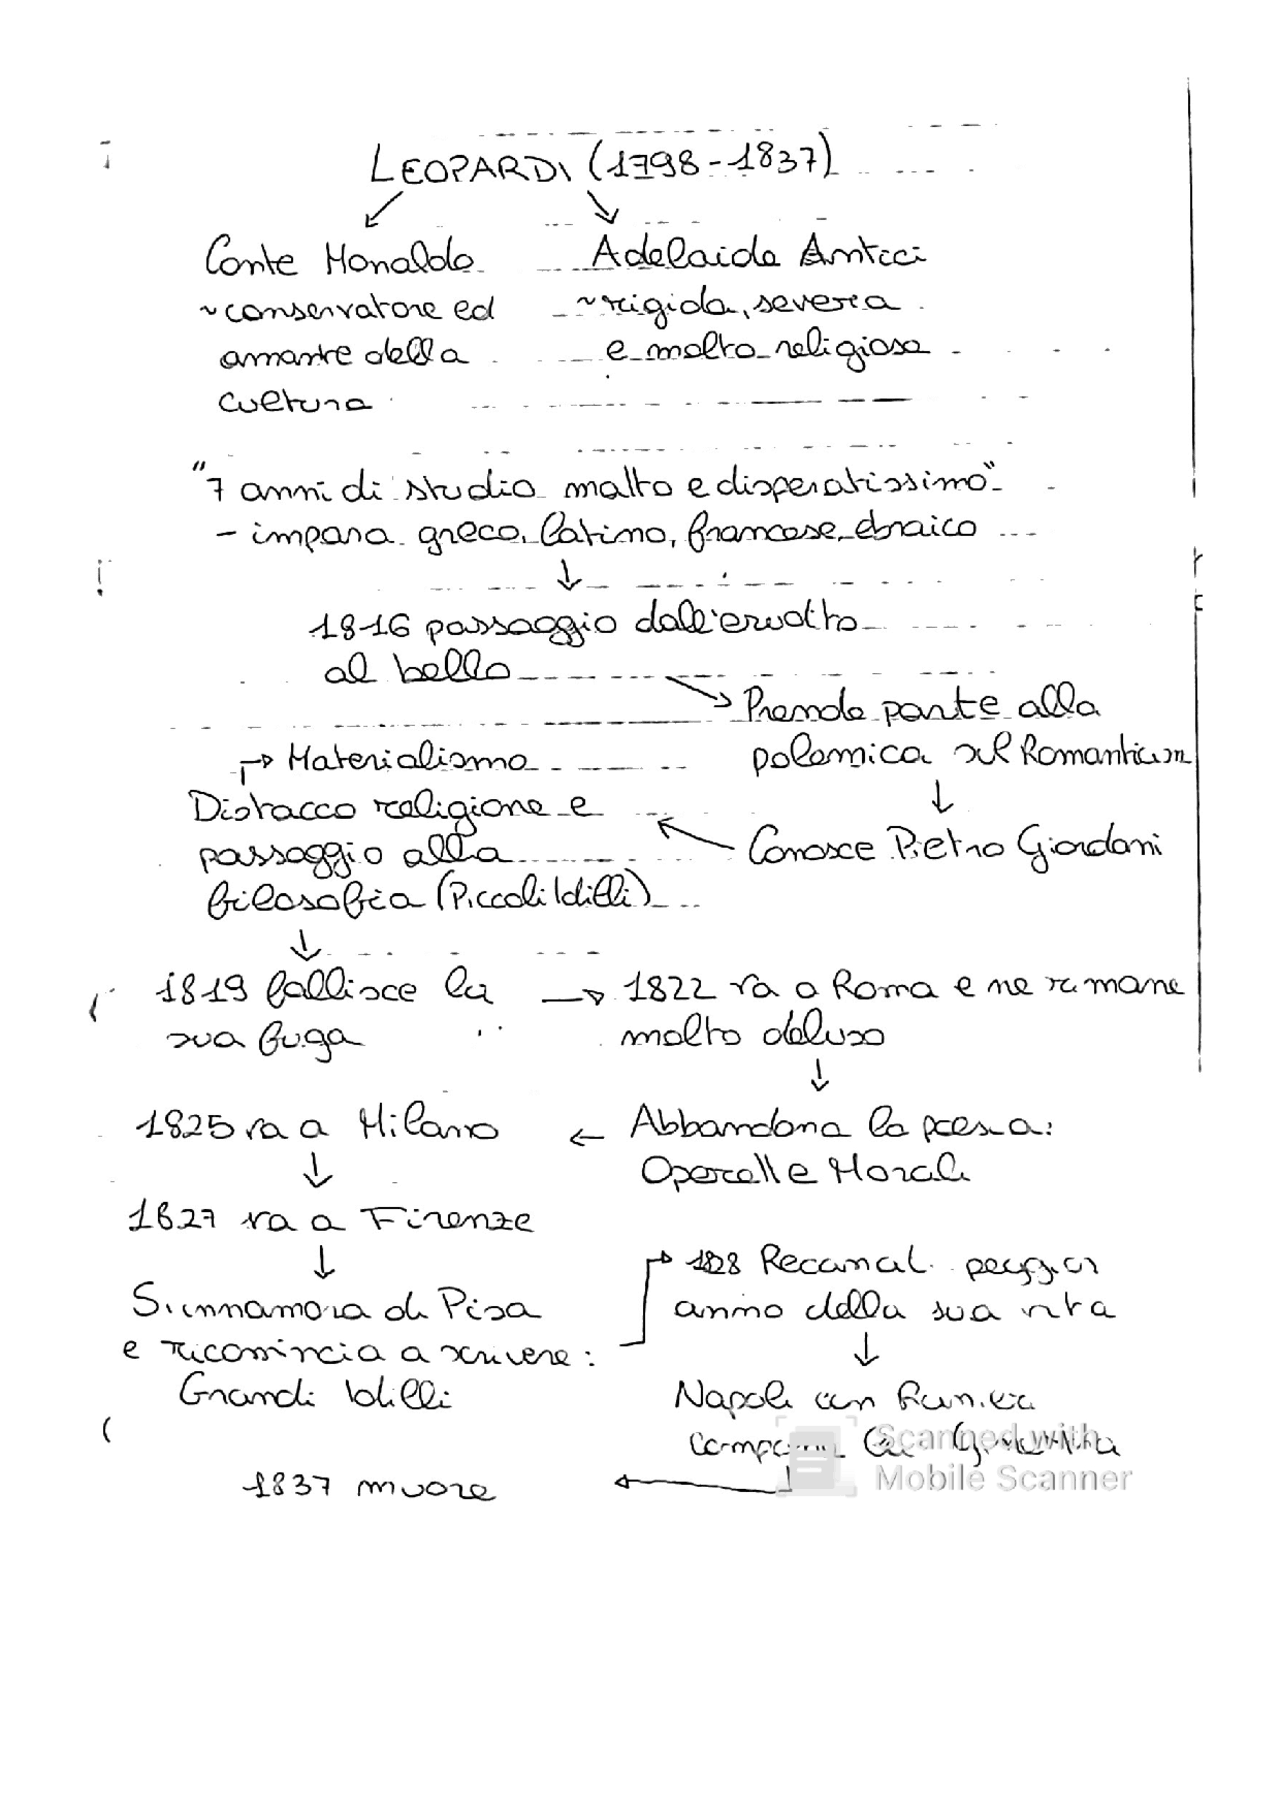 LEOPARDI (1798-1837)
Conte Monaldo
~conservatore ed
amante della
cultura
Adelaide Antici
~rigida, severa
e molto religiosa
"7 anni di studio matto e disperatissimo"
- impara greco, latino, francese, ebraico
1816 passaggio dall'erudito
al bello
Prende parte alla
polemica sul Romanticism
Conosce Pietro Giordani
Materialismo
Distacco religione e
passaggio alla
filosofia (Piccoli Idilli)
1819 fallisce la
sua fuga
1822 va a Roma e ne rimane
molto deluso
Abbandona la poesia:
Operette Morali
1825 va a Milano
1827 va a Firenze
S'innamora di Pisa
e ricomincia a scrivere:
Grandi Idilli
1828 Recanati peggior
anno della sua vita
Napoli con Ranieri
1837 muore
Scanned with
Mobile Scanner